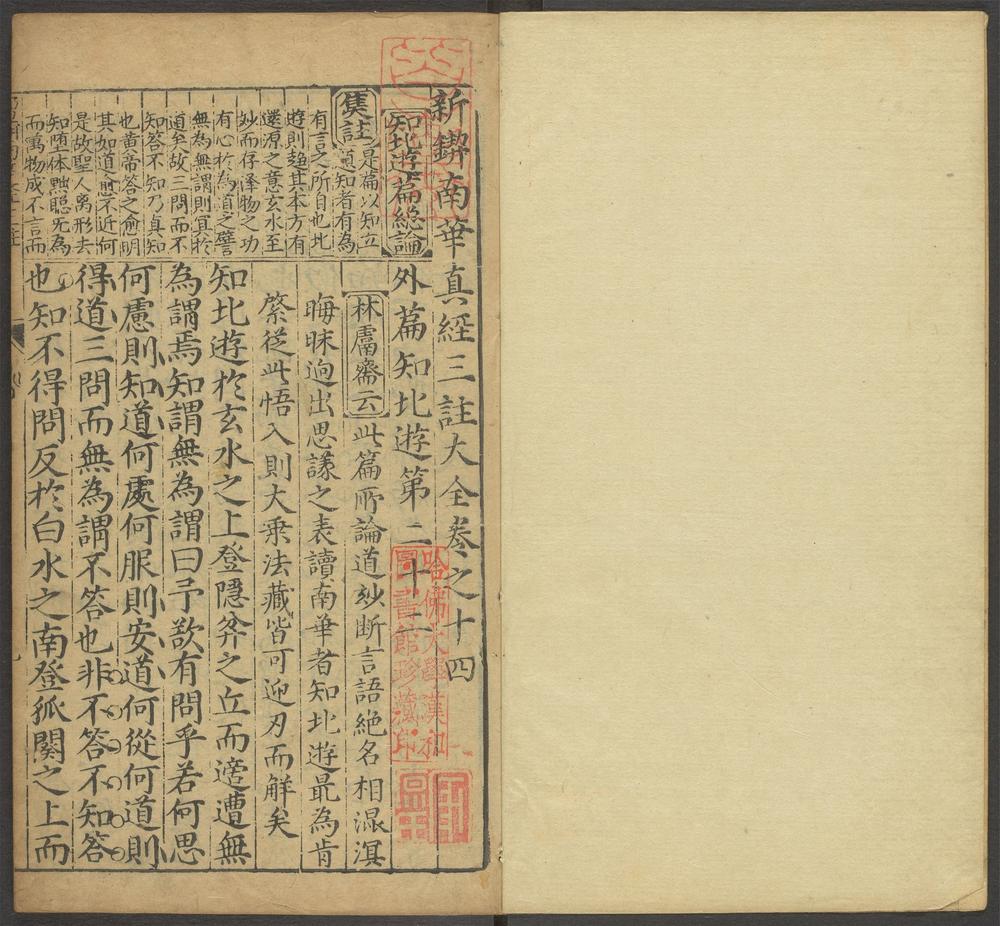 新鍥南華真經三註大全卷之十四
知北遊篇總論
外篇知北遊第二十二
集註
是篇以知立
遊知者有為
有言之所自也北
遊則趋其本方有
還源之意玄水至
妙而存澤物之功
有心於為道之譬
無為無謂則冥於
道矣故三問而不
知答不知乃真知
也黄帝答之愈明
其如道愈不近何
是故聖人离形去
知堕体黜聡旡為
而萬物成不言而
林鬳齋云此篇所論道玅断言語絶名相混溟
晦昧迥出思議之表讀南華者知北遊最為肯
綮從此悟入則大乘法藏皆可迎刃而解矣
知北遊於玄水之上登隱弅之丘而適遭無
為謂焉知謂無為謂曰予欲有問乎若何思
何慮則知道何處何服則安道何從何道則
得道三問而無為謂不答也非不答不知答
也知不得問反於白水之南登狐闋之上而
哈佛大學漢和
圖書館珍藏印